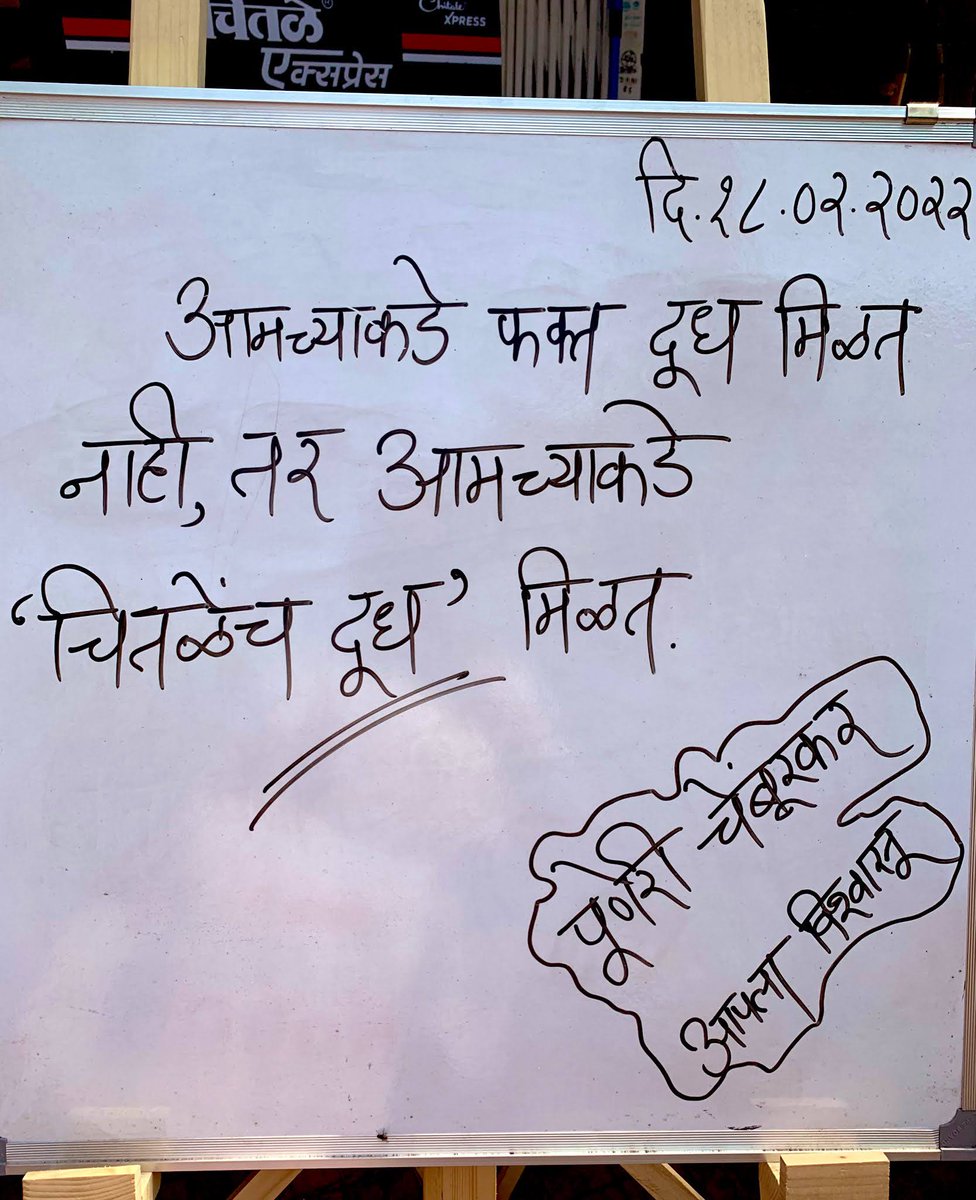 चितळे®
एक्सप्रेस
Chitale
XPRESS
दि.१८.०२.२०२२
आमच्याकडे फक्त दूध मिळत
नाही, तर आमच्याकडे
‘चितळेंच दूध’ मिळत.
पूणेरी चेंबूरकर
आपला विश्वासू